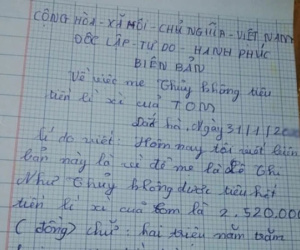 CỘNG HÒA - XÃ HỘI - CHỦ NGHĨA - VIỆT NAM
ĐỘC LẬP - TỰ DO - HẠNH PHÚC
BIÊN BẢN
Về việc mẹ Thủy không tiêu
tiền lì xì của TOM
Hà, Ngày 31/1/20
Lí do viết: Hôm nay tôi viết biên
bản này là vì để mẹ là Lê Thị
Như Thủy không được tiêu hết
tiền lì xì của tom là 2,520.000
(đồng) chữ: hai triệu năm trăm